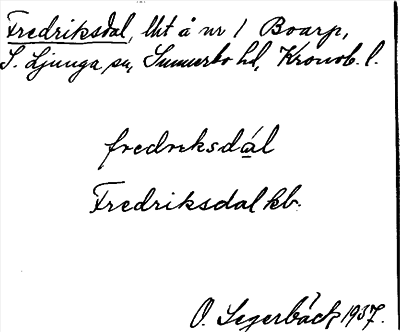 Fredriksdal, lht å nr 1 Boarp,
S. Ljunga sn, Sunnerbo hd, Kronob. l.
fredreksdál
Fredriksdal kb.
O. Segerbäck 1937.